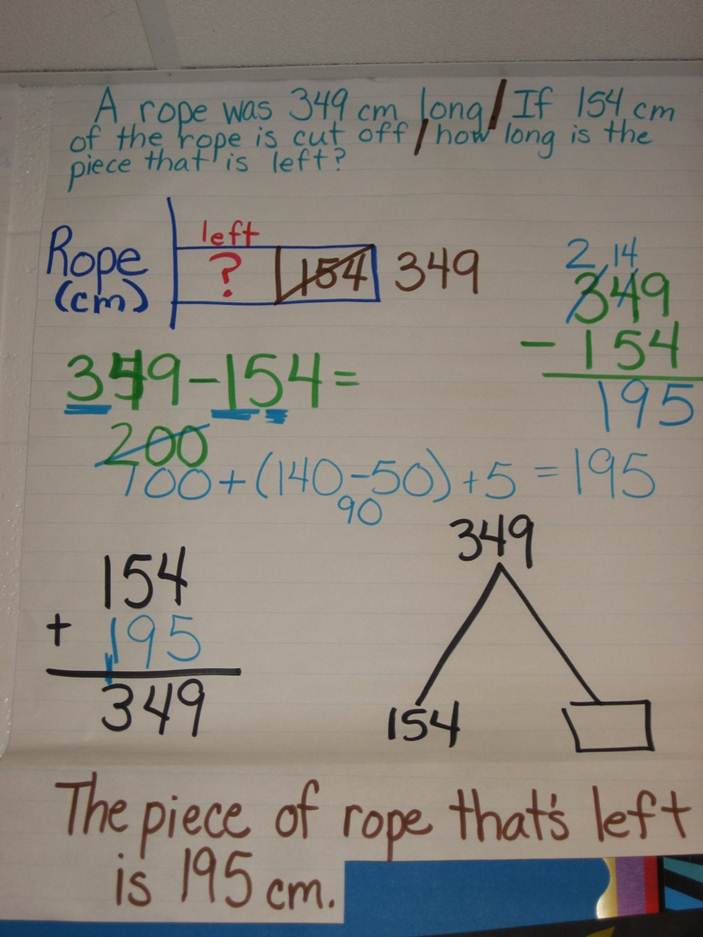 A rope was 349 cm long/If 154 cm
of the rope is cut off/how long is the
piece that is left?
left
Rope ? 154 349
(cm)
2 14
349
- 154
195
349-154=
200
100+(140-50)+5=195
90
154
+ 195
349
349
154
The piece of rope that's left
is 195 cm.